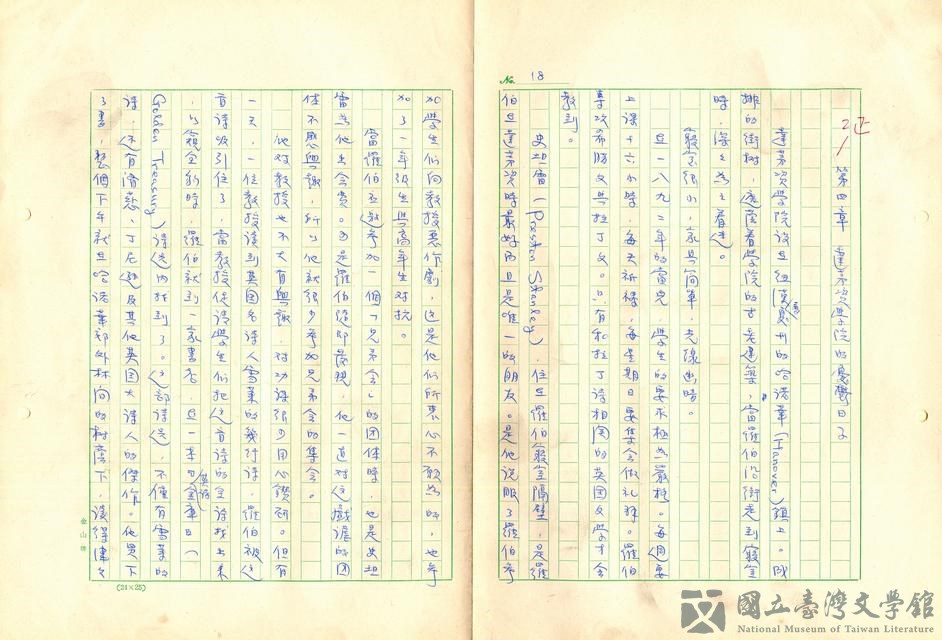 No. 18
第四章 達茅次學院的憂鬱日子
達茅次學院設在紐漢息州的哈諾華(Hanover)鎮上。成
排的街树,遮蔭着學院的古老建築,當羅伯沿街走到寢室
時,深深為之着迷。
寢室很小,家具简單,光線幽暗。
在一八九二年的當兒,學生的要求極為嚴格。每週要
上課十六小時,每天祈禱,每星期日要集會做礼拜。羅伯
喜欢希腊文與拉丁文。只有和拉丁詩相関的英国文學才会
教到。
史坦雷(Preston Shankey),住在羅伯寢室隔壁,是羅
伯在達茅次時最好而且是唯一的朋友。是他説服了羅伯参
加學生们向教授惡作劇,这是他们所衷心不願為的,也参
加了一年級生與高年生对抗。
當羅伯被邀参加一個「兄弟会」的团体時,也是史坦
雷為他出会费。可是羅伯隨即發現,他一直对这戲謔的团
体不感興趣,所以他就很少参加兄弟会的集会。
他对教授也不大有興趣,对功课很少用心鑽研。但有
一天,一位教授读到英国名诗人雪莱的幾行诗,羅伯被这
首诗吸引住了,當教授使诸學生们把这首诗的全诗找出来
,以窺全豹時,羅伯就到一家書店,在一本叫「英诗金庫」(
Golden Treasury)诗选内找到了。这部诗选,不僅有雪莱的
诗,还有濟慈、丁尼逊及其他英国大诗人的傑作。他買下
了書,整個下午就在哈诺華郊外林间的树蔭下,读得津々
金山牌
(24×25)
國立臺灣文學館
National Museum of Taiwan Literature